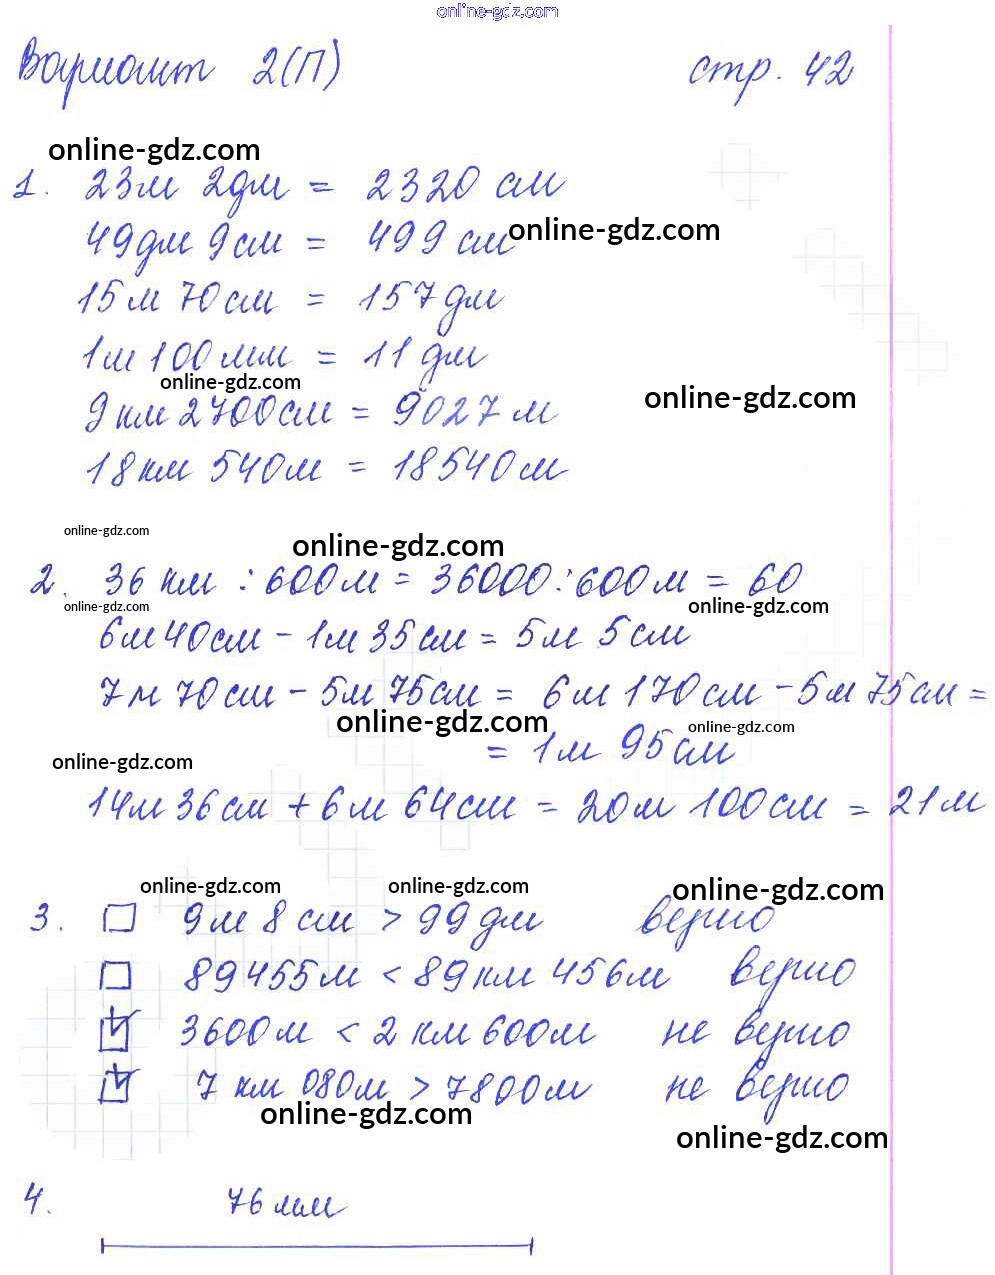 online-gdz.com
Вариант 2(П) стр. 42
online-gdz.com
1. 23м 2дм = 2320 см
49дм 9см = 499 см online-gdz.com
15м 70см = 157 дм
1м 100мм = 11 дм
online-gdz.com online-gdz.com
9 км 2700см = 9027 м
18км 540м = 18540м
online-gdz.com online-gdz.com
2. 36 км : 600м = 36000 : 600м = 60
online-gdz.com online-gdz.com
6м 40см - 1м 35см = 5м 5см
7м 70см - 5м 75см = 6м 170см - 5м 75см =
online-gdz.com online-gdz.com
= 1м 95см
online-gdz.com
14м 36см + 6м 64см = 20м 100см = 21м
online-gdz.com online-gdz.com online-gdz.com
3. 9м 8см > 99дм верно
89455м < 89км 456м верно
3600м < 2 км 600м не верно
7 км 080м > 7800м не верно
online-gdz.com
online-gdz.com
4. 76 мм